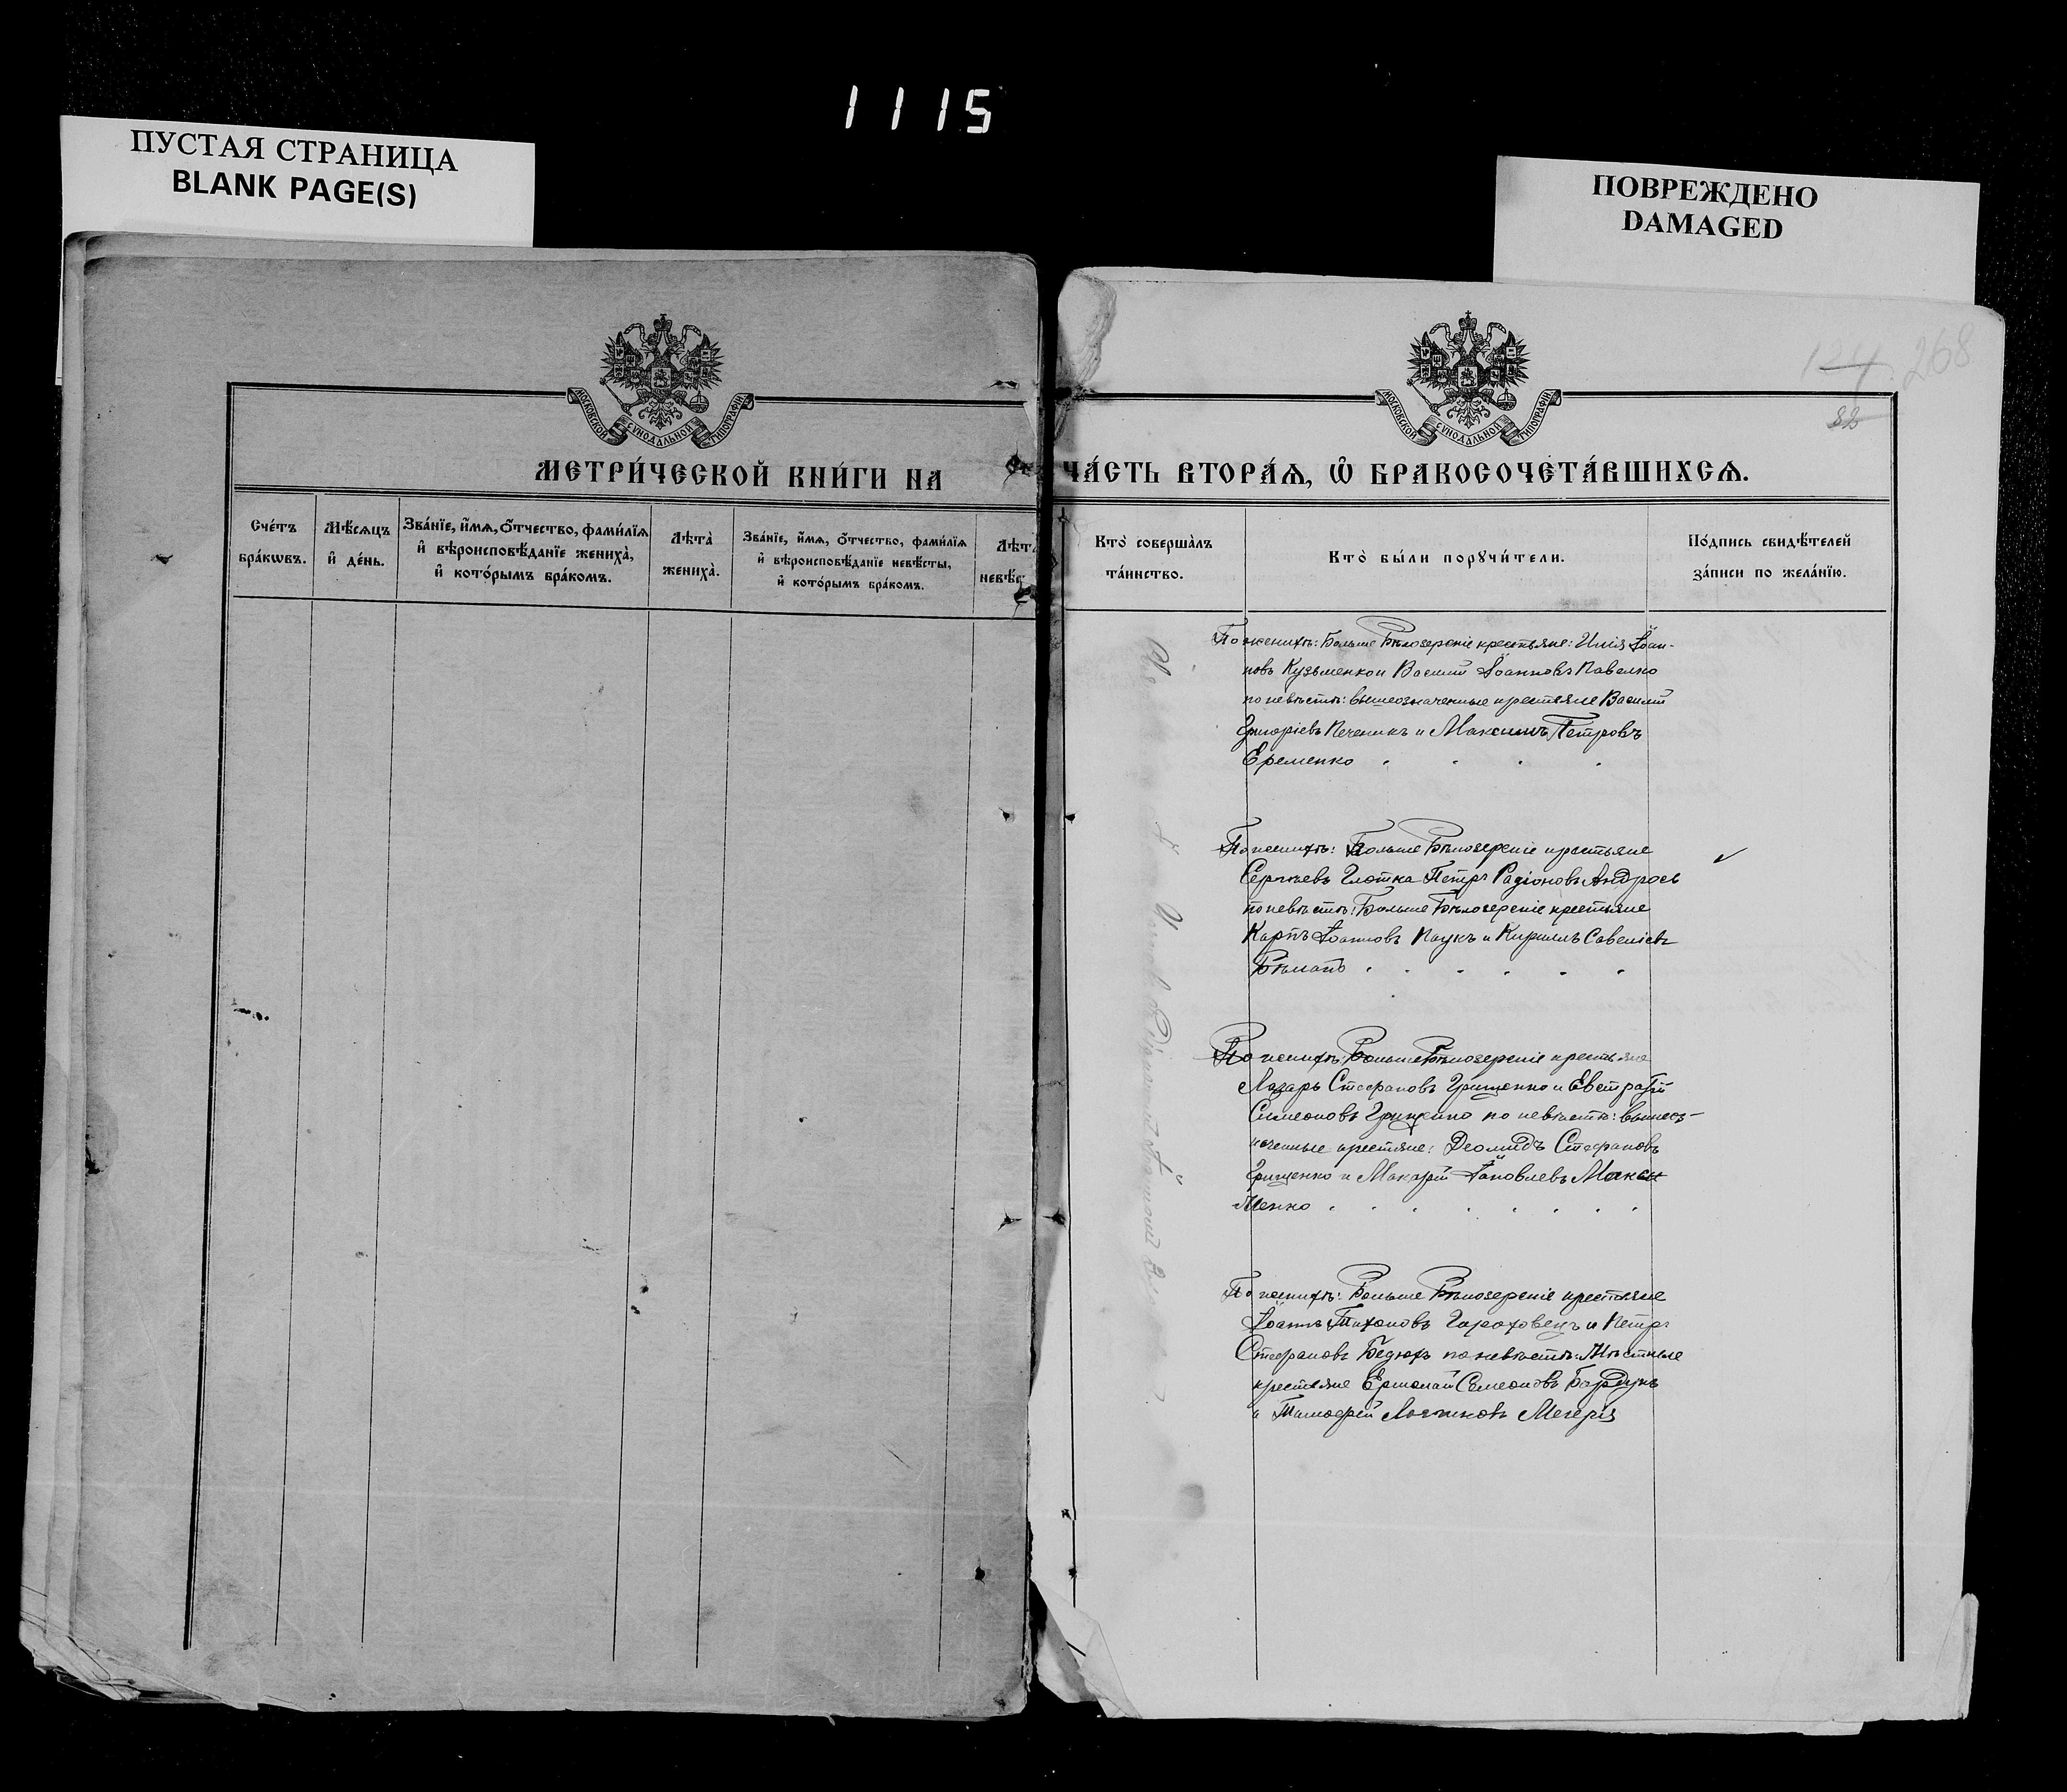 1115
ПУСТАЯ СТРАНИЦА
BLANK PAGE(S)
ПОВРЕЖДЕНО
DAMAGED
268
МОСКОВСКОЙ СѴНОДАЛЬНОЙ ТИПОГРАФІИ
МЕТРИ́ЧЕСКОЙ КНИ́ГИ НА
Сче́тъ бра́кѡвъ.
Мѣ́сяцъ и҆ де́нь.
Зва́нїе, и҆́мѧ, ѻ҆́тчество, фами́лїѧ и҆ вѣроисповѣ́данїе жениха̀, и҆ кото́рымъ бра́комъ.
Лѣта̀ жениха̀.
Зва́нїе, и҆́мѧ, ѻ҆́тчество, фами́лїѧ и҆ вѣроисповѣ́данїе невѣ́сты, и҆ кото́рымъ бра́комъ.
Лѣт
невѣ́с
МОСКОВСКОЙ СѴНОДАЛЬНОЙ ТИПОГРАФІИ
ЧА́СТЬ ВТОРА́Ѧ, Ѽ БРАКОСОЧЕТА́ВШИХСѦ.
Кто̀ соверша̀лъ
та́инство.
Кто̀ бы́ли порꙋчи́тели.
По́дпись свидѣ́телей
за́писи по жела́нїю.
По женихѣ: Больше Бѣлозерскіе крестьяне: Илія Іоан-
новъ Кузьменко и Василій Іоанновъ Павелко
по невѣстѣ: вышеозначенные крестьяне Василій
Григоріевъ Печеникъ и Максимъ Петровъ
Еременко
По женихѣ: Больше Бѣлозерскіе крестьяне
Сергѣевъ Глотка Петръ Радіоновъ Андрось
по невѣстѣ: Больше Бѣлозерскіе крестьяне
Карпъ Іоанновъ Паукъ и Кириллъ Савеліевъ
По женихѣ: Больше Бѣлозерскіе крестьяне
Лазарь Стефановъ Грищенко и Евстратій
Симеоновъ Грищенко по невѣстѣ: вышеоз-
наченные крестьяне: Деомидъ Стефановъ
Грищенко и Макарій Іаковлевъ Макси
менко
По женихѣ: Больше Бѣлозерскіе крестьяне
Іоаннъ Тихоновъ Гороховецъ и Петръ
Стефановъ по невѣстѣ: Мѣстные
крестьяне Ермолай Симеоновъ Бардукъ
и Тимофей Логиновъ